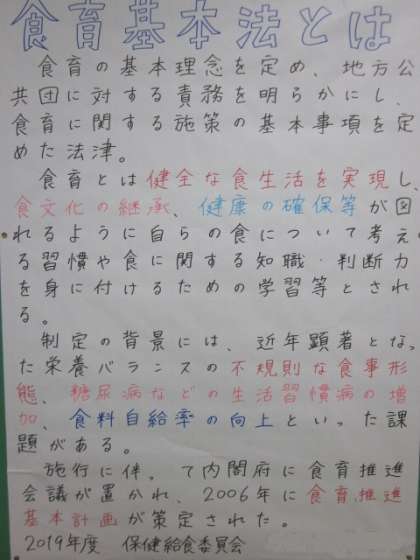 食育基本法とは
食育の基本理念を定め、地方公
共団に対する責務を明らかにし、
食育に関する施策の基本事項を定
めた法津。
食育とは健全な食生活を実現し、
食文化の継承、健康の確保等が図
れるように自らの食について考え
る習慣や食に関する知職・判断力
を身に付けるための学習等とされ
る。
制定の背景には、近年顕著となっ
た栄養バランスの不規則な食事形
態、糖尿病などの生活習慣病の増
加、食料自給率の向上といった課
題がある。
施行に伴って内閣府に食育推進
会議が置かれ、2006年に食育推進
基本計画が策定された。
2019年度 保健給食委員会